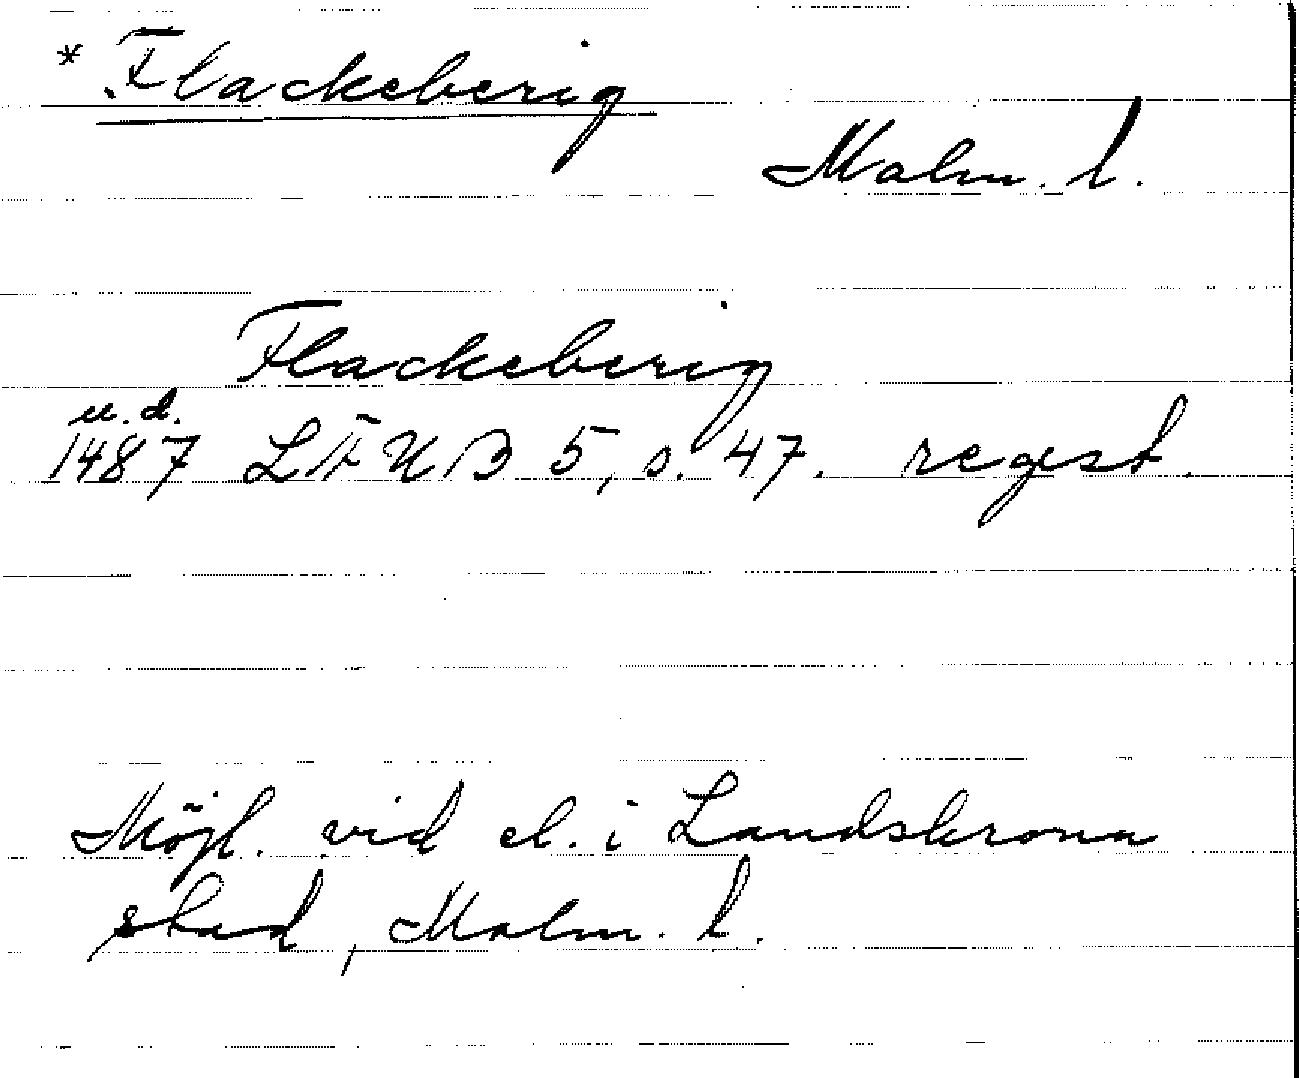 * Flackeberig
Malm. l.
Flackeberig
u.d.
1487 LÄUB 5, s. 47. regest.
Möjl. vid el. i Landskrona
stad, Malm. l.